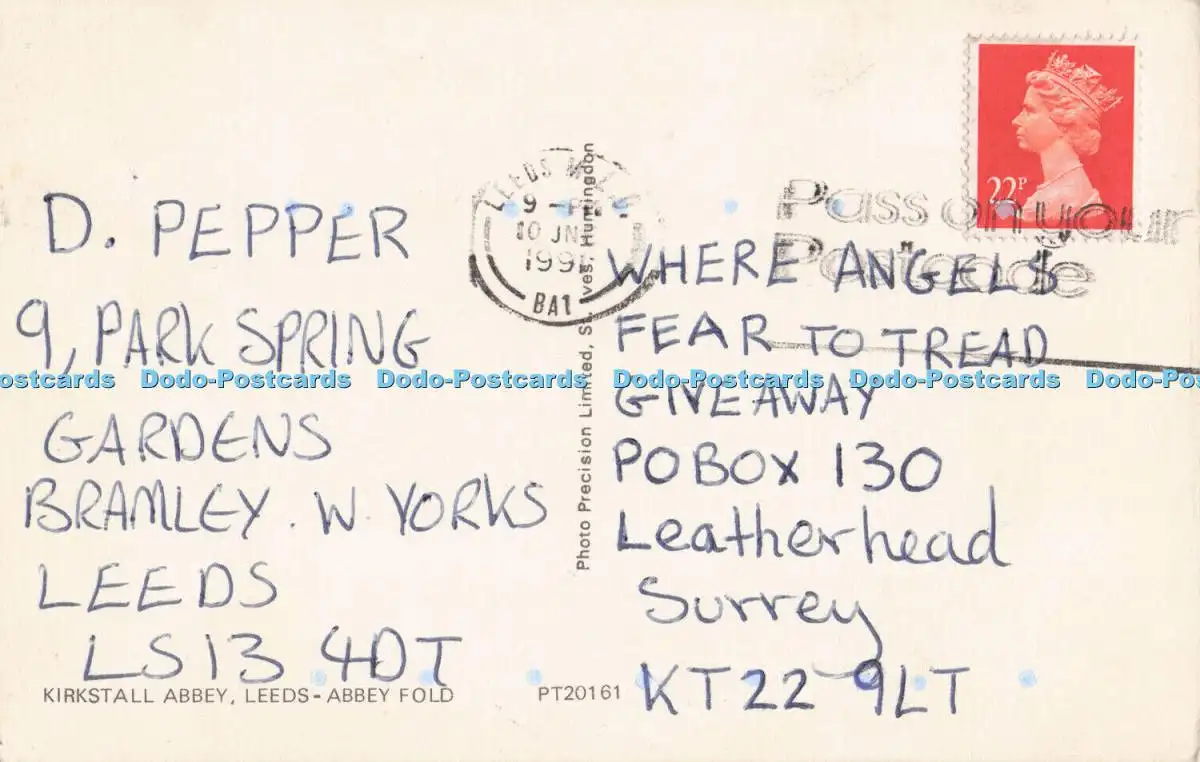 22P
LEEDS
9
10 JN
199
BA1
Pass on your
Postcode
D. PEPPER
9, PARK SPRING
GARDENS
BRAMLEY. W. YORKS
LEEDS
LS13 4DT
KIRKSTALL ABBEY, LEEDS - ABBEY FOLD
Photo Precision Limited, St. Ives, Huntingdon
PT20161
WHERE ANGELS
FEAR TO TREAD
GIVEAWAY
PO BOX 130
Leatherhead
Surrey
KT22 9LT
Dodo-Postcards Dodo-Postcards Dodo-Postcards Dodo-Postcards Dodo-Postcards